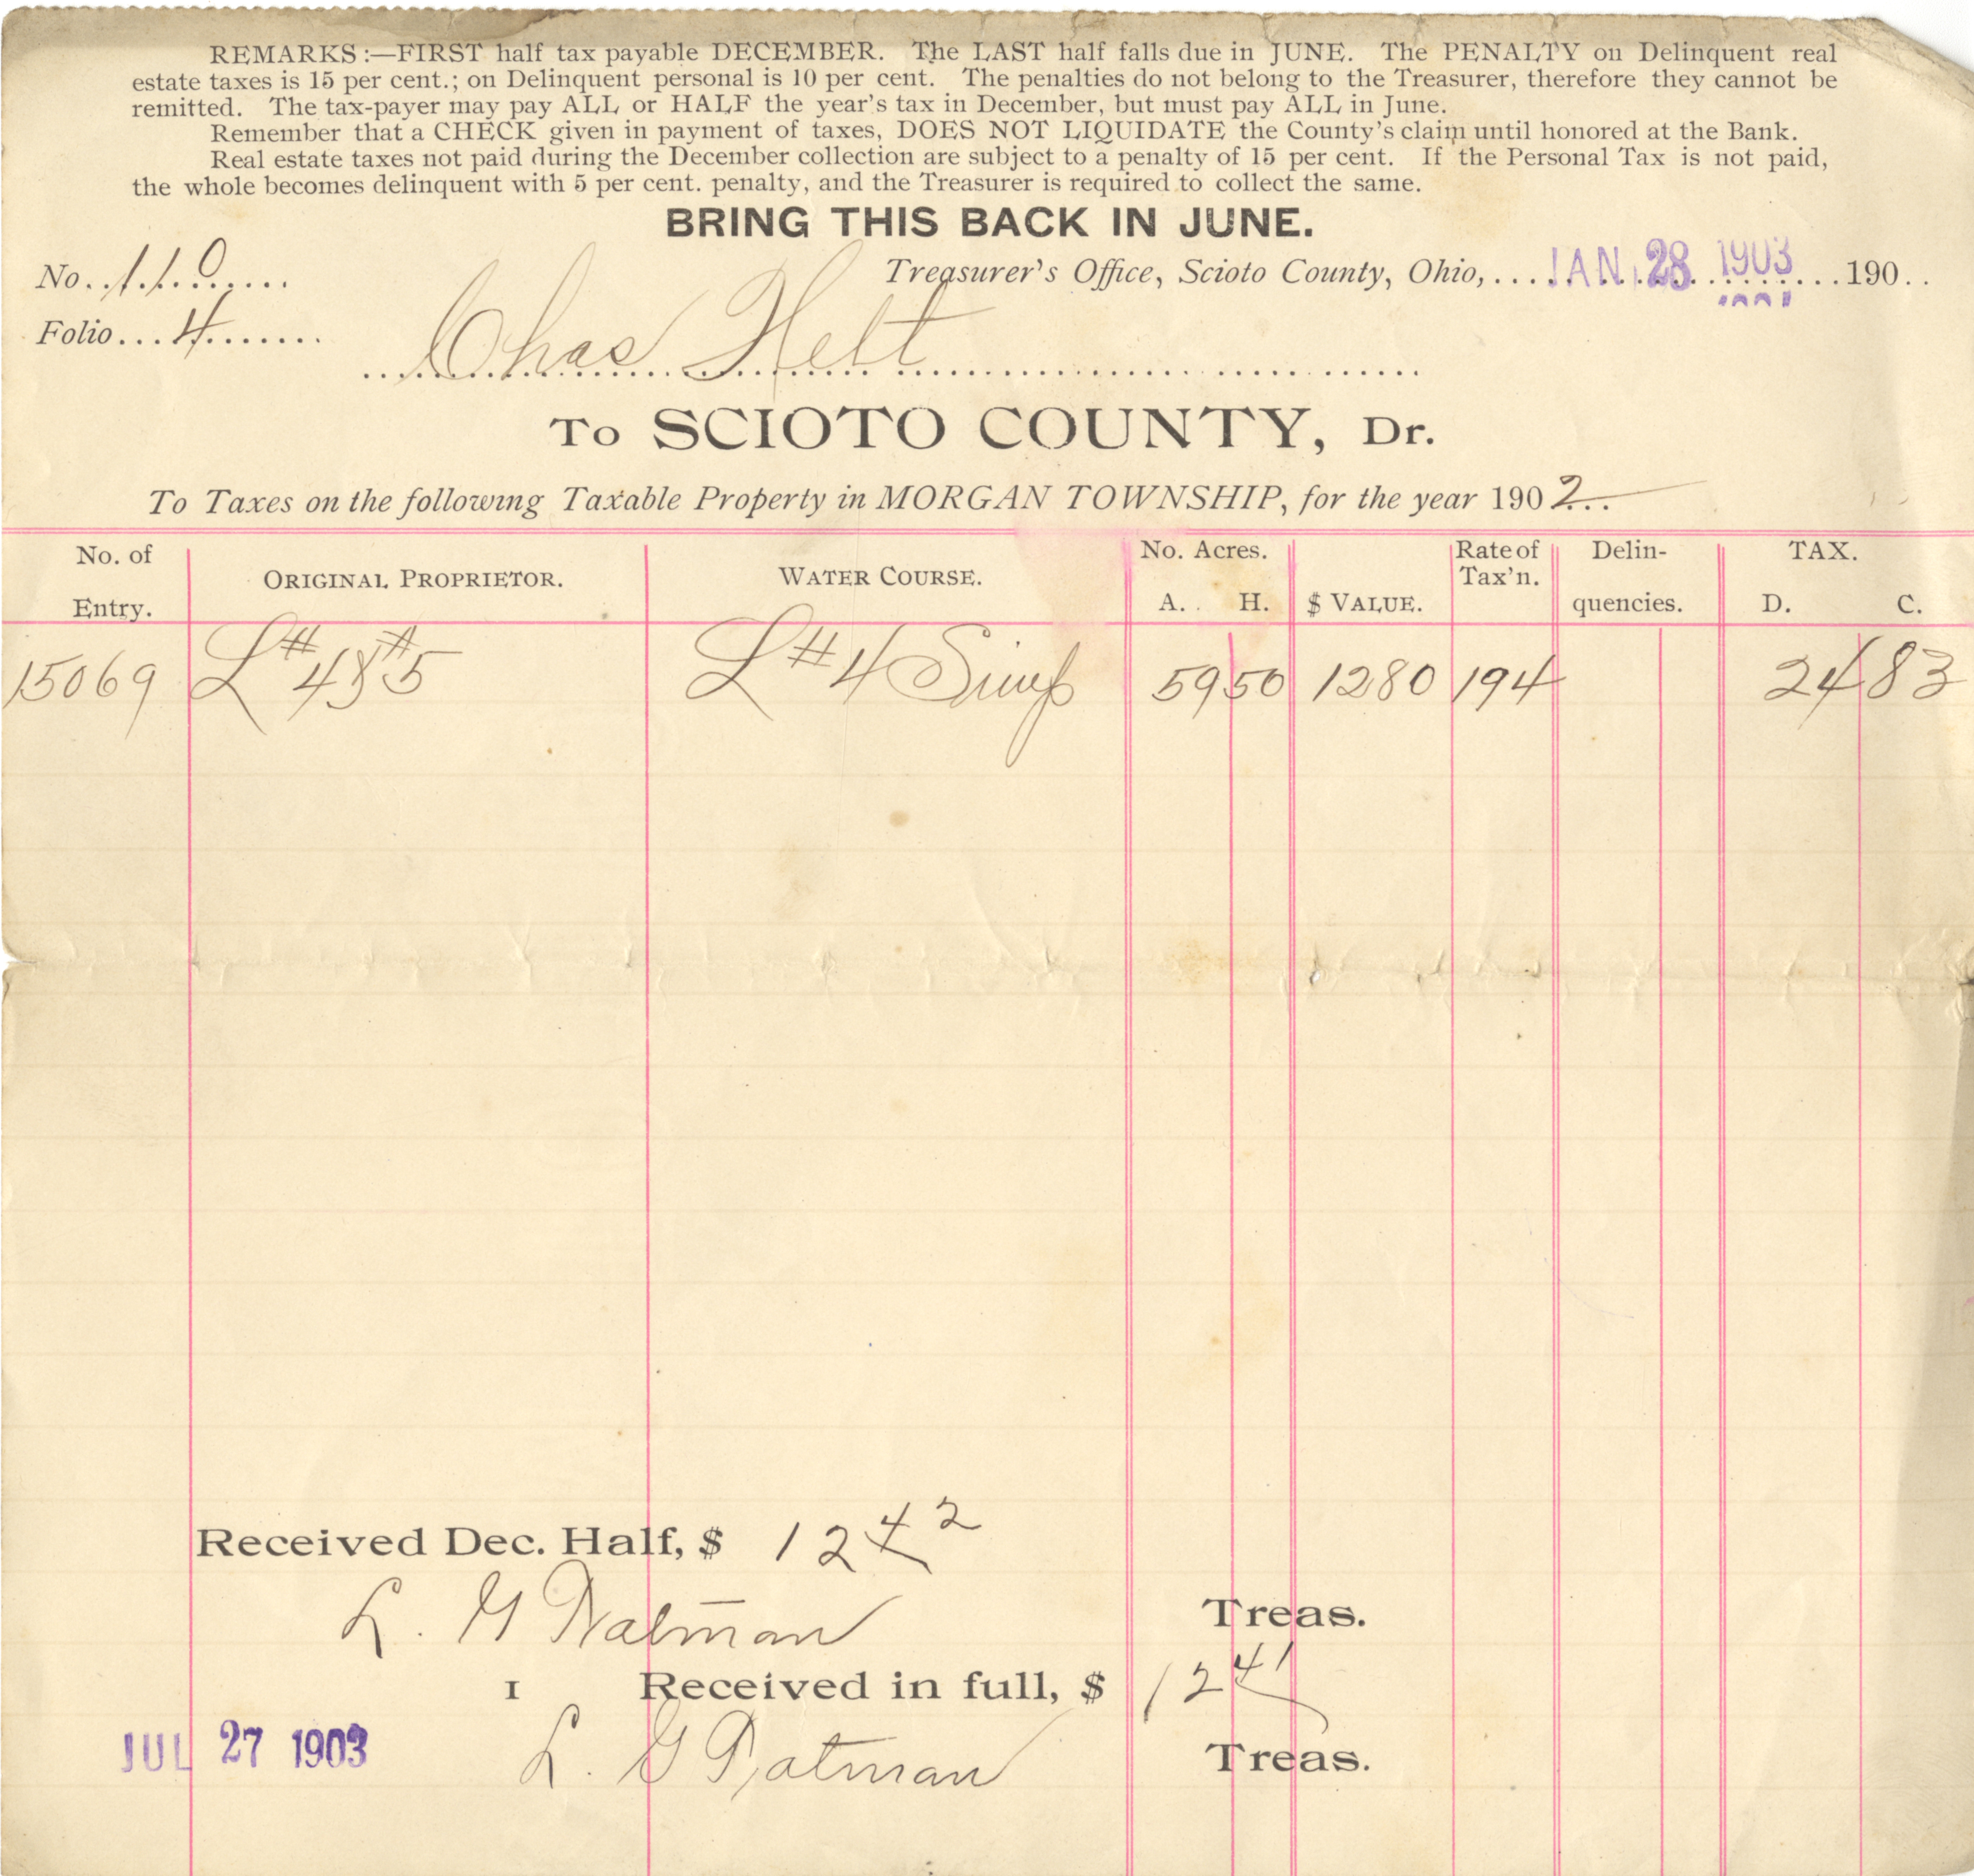 REMARKS:—FIRST half tax payable DECEMBER. The LAST half falls due in JUNE. The PENALTY on Delinquent real
estate taxes is 15 per cent.; on Delinquent personal is 10 per cent. The penalties do not belong to the Treasurer, therefore they cannot be
remitted. The tax-payer may pay ALL or HALF the year's tax in December, but must pay ALL in June.
Remember that a CHECK given in payment of taxes, DOES NOT LIQUIDATE the County's claim until honored at the Bank.
Real estate taxes not paid during the December collection are subject to a penalty of 15 per cent. If the Personal Tax is not paid,
the whole becomes delinquent with 5 per cent. penalty, and the Treasurer is required to collect the same.
BRING THIS BACK IN JUNE.
No. 110
Treasurer's Office, Scioto County, Ohio, JAN. 28 1903 190
Folio 4
Chas Helt
To SCIOTO COUNTY, Dr.
To Taxes on the following Taxable Property in MORGAN TOWNSHIP, for the year 1902
No. of Entry. ORIGINAL PROPRIETOR. WATER COURSE. No. Acres. A. H. $ VALUE. Rate of Tax'n. Delinquencies. TAX. D. C.
15069 L #4 & #5 L #4 Simp 59 50 1280 194 24 83
Received Dec. Half, $ 12 42
L. G Watman
Treas.
1 Received in full, $ 12 41
JUL 27 1903 L. G Watman Treas.